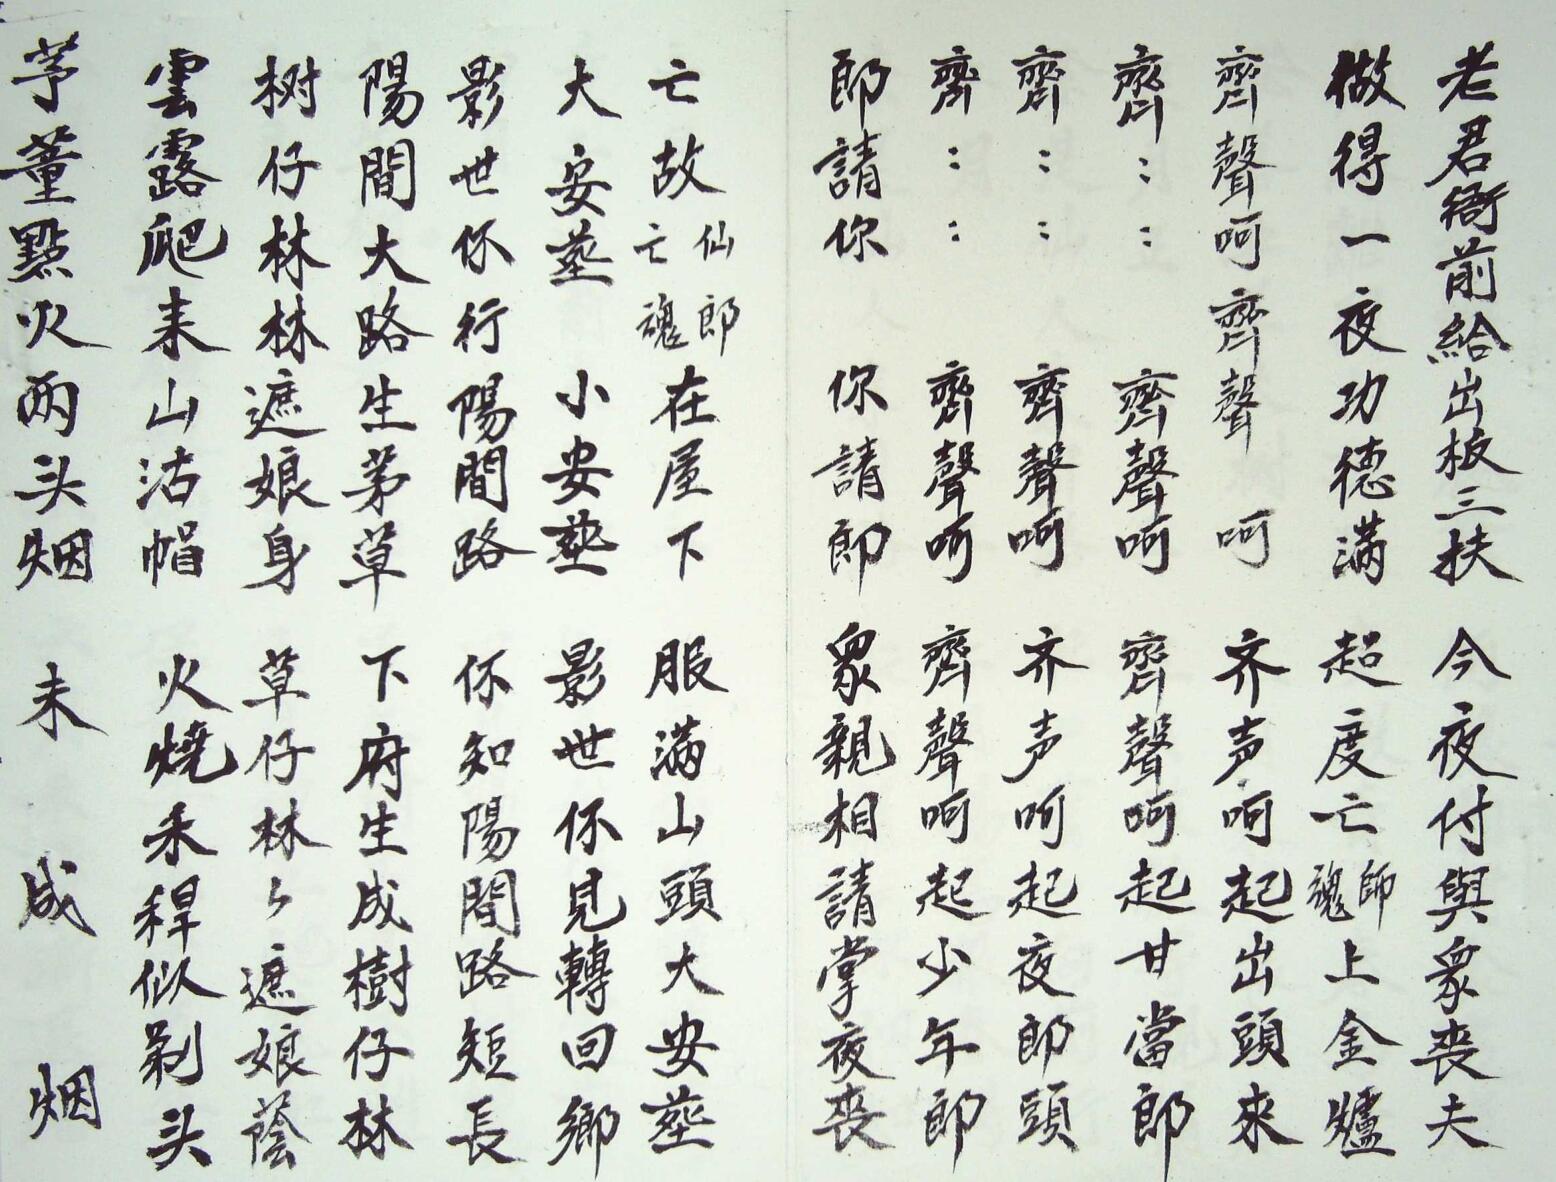 老君衙前給出板三扶 今夜付與衆喪夫
做得一夜功德满 超度亡魂師上金爐
齊聲呵齊聲呵 齐声呵起出頭來
齊:: 齊聲呵 齊聲呵起甘當郎
齊:: 齊聲呵 齐声呵起夜郎頭
齊:: 齊聲呵 齊聲呵起少年郎
郎請你 你請郎 衆親相請掌夜喪
亡故亡魂仙郎在屋下 服滿山頭大安塟
大安塟 小安塟 影世伱見轉回鄉
影世伱行陽間路 伱知陽間路短長
陽間大路生茅草 下府生成樹仔林
树仔林林遮娘身 草仔林々遮娘蔭
雲露爬来山沽帽 火燒禾稈似剃头
芋蕫點火两头烟 未成烟